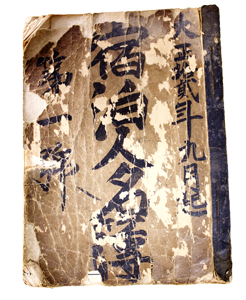 大正貳年九月起
宿泊人名簿
第一號